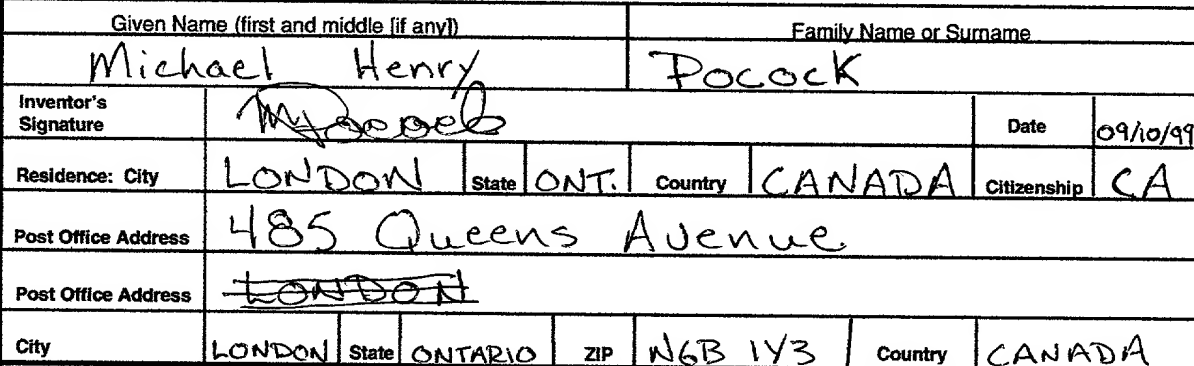 Given Name (first and middle [if any]) Family Name or Surname
Michael Henry Pocock
Inventor's Signature MPocock Date 09/10/99
Residence: City LONDON State ONT. Country CANADA Citizenship CA
Post Office Address 485 Queens Avenue
Post Office Address LONDON
City LONDON State ONTARIO ZIP N6B 1Y3 Country CANADA